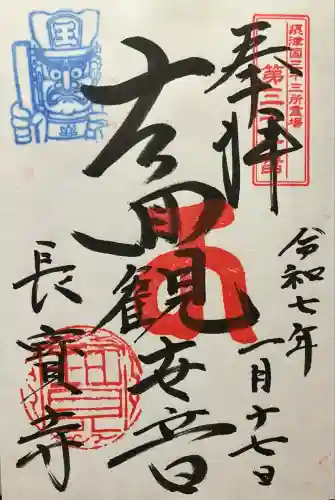 摂津国三十三所霊場
奉拝
令和七年
一月十七日
十一面観世音
長寳寺
王